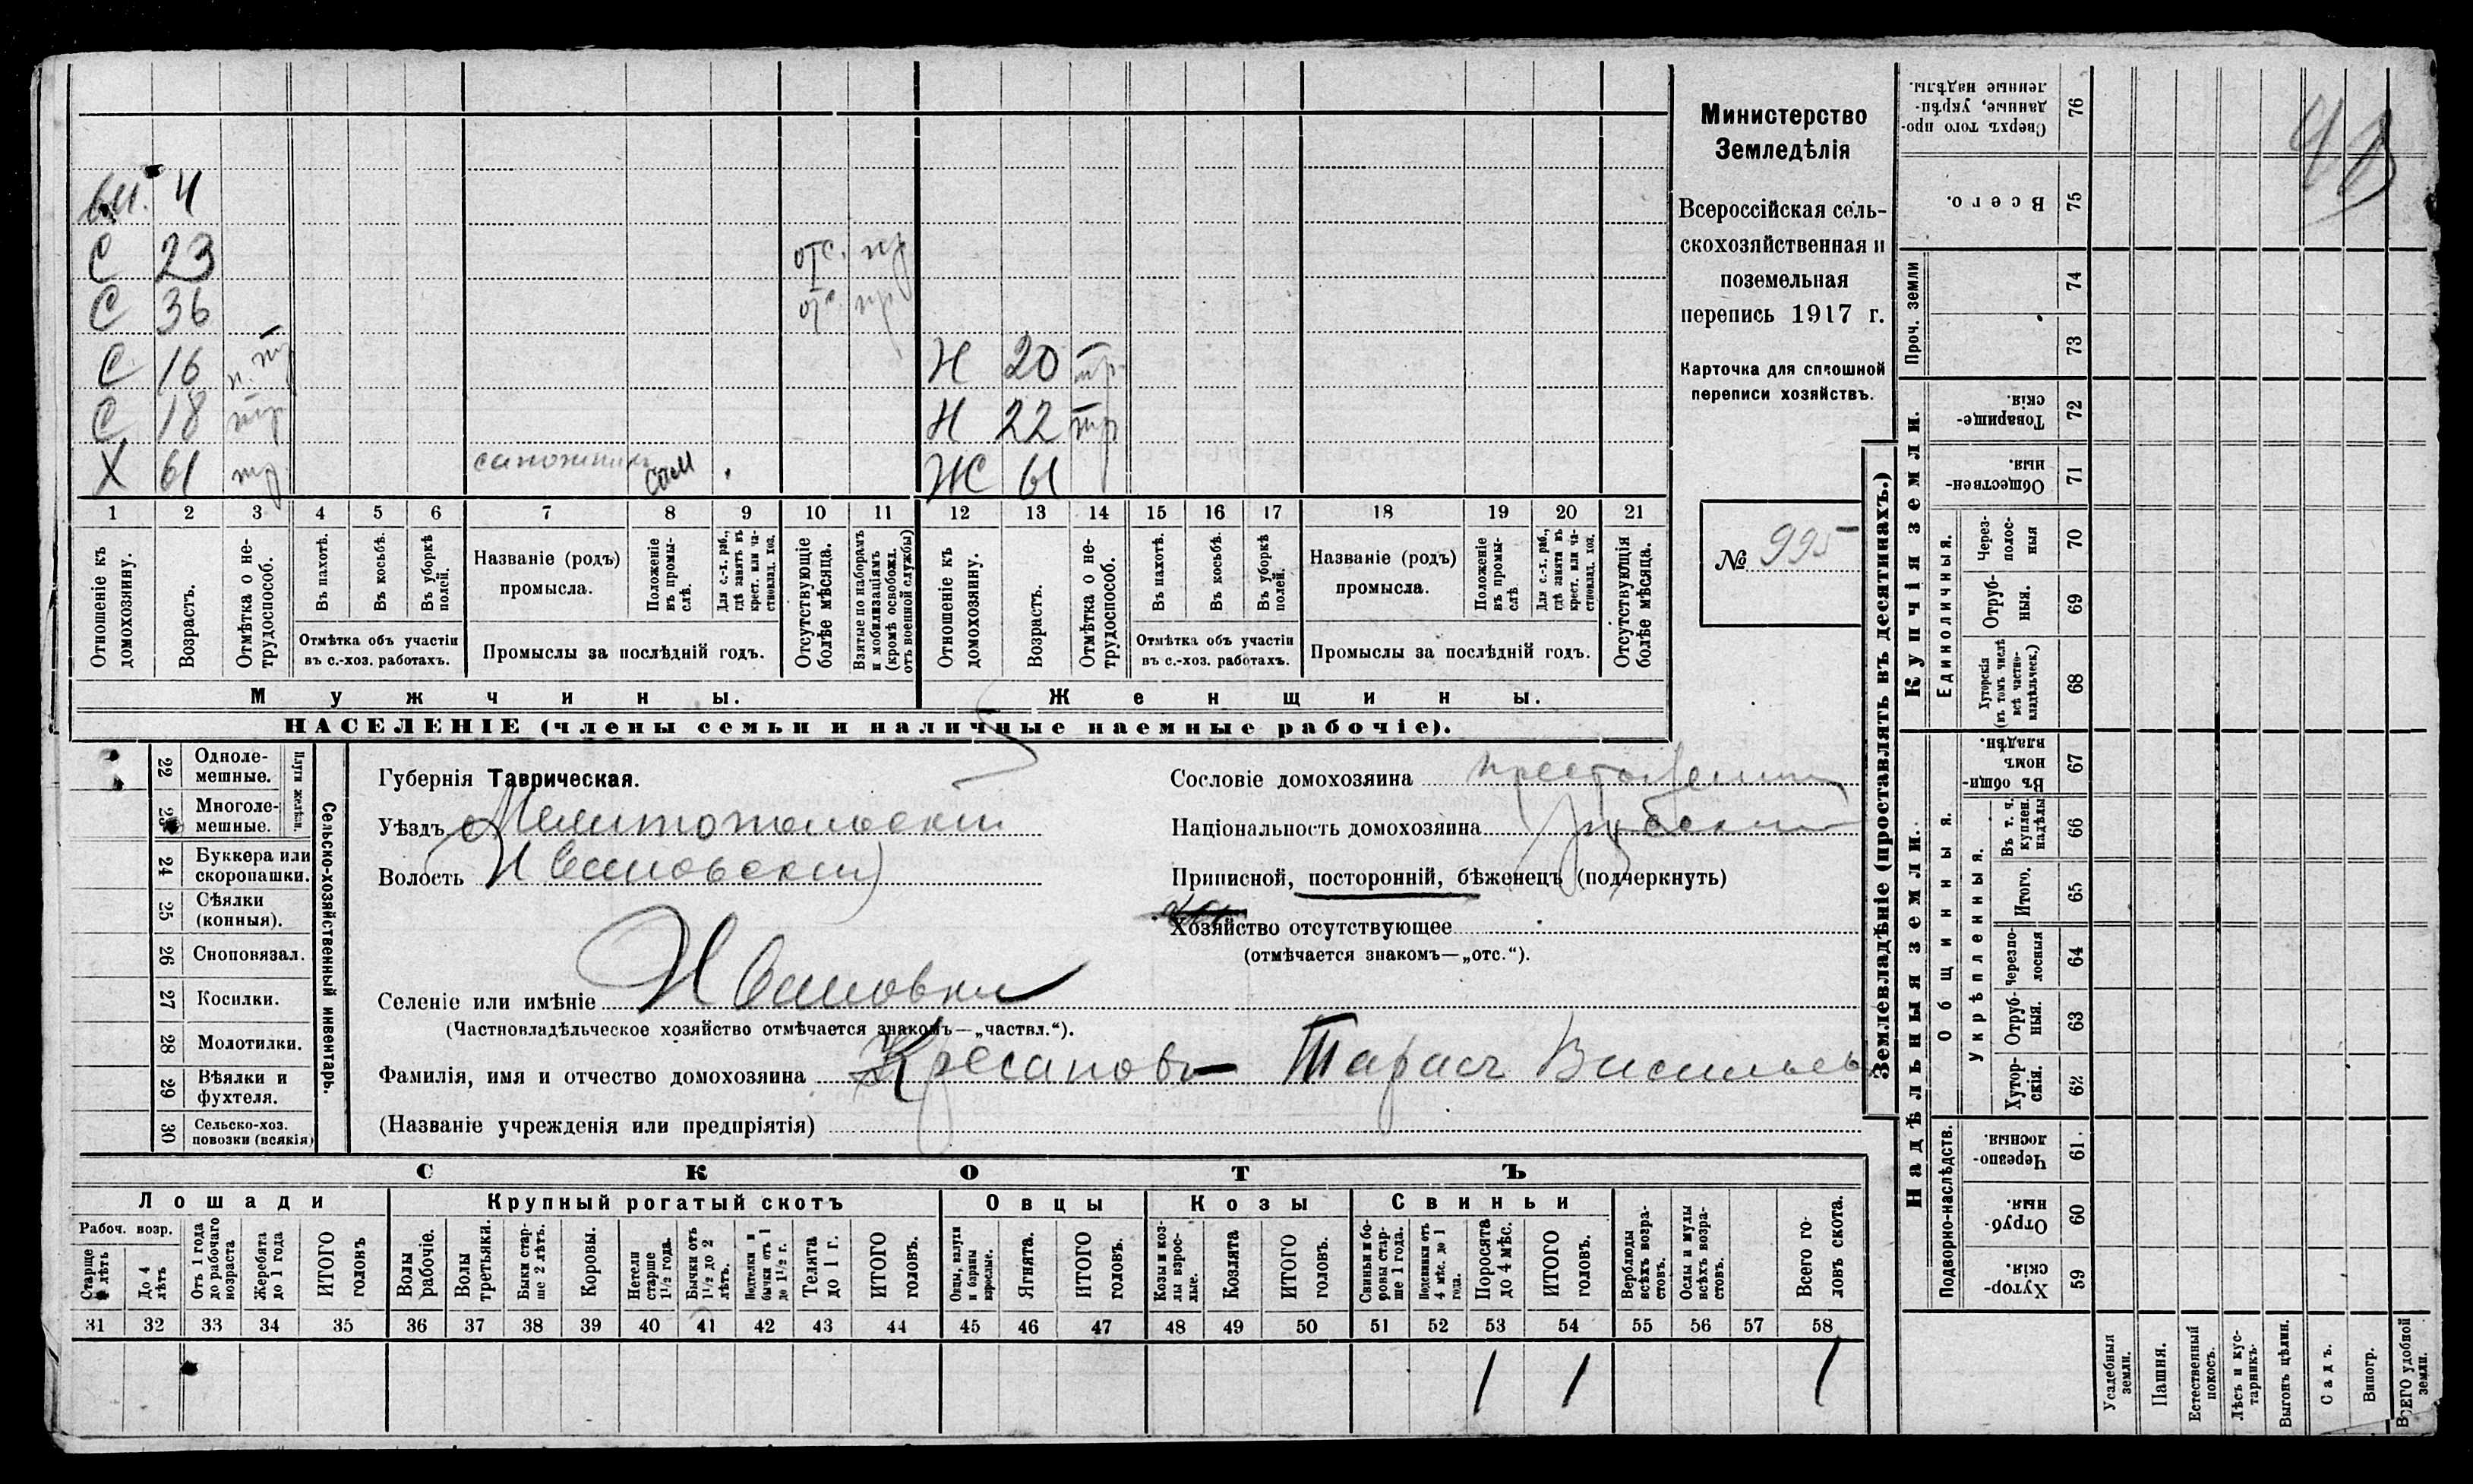 вн. 4
С 23 отс. пр
С 36 отс. пр
С 16 н. тр Н 20 тр.
С 18 тр Н 22 тр
Х 61 тр сапожникъ сам Ж 61
1 2 3 4 5 6 7 8 9 10 11 12 13 14 15 16 17 18 19 20 21
Отношеніе къ домохозяину.
Возрастъ.
Отмѣтка о не-
трудоспособ.
Въ пахотѣ.
Въ косьбѣ.
Въ уборкѣ
полей.
Отмѣтка объ участіи
въ с.-хоз. работахъ.
Названіе (родъ)
промысла.
Положеніе
въ промы-
слѣ.
Для с.-х. раб.,
гдѣ занятъ въ
крест. или ча-
стновлад. хоз.
Промыслы за послѣдній годъ.
Отсутствующіе
болѣе мѣсяца.
Взятые по наборамъ
и мобилизаціямъ
(кромѣ освобожд.
отъ военной службы)
Отношеніе къ
домохозяину.
Возрастъ.
Отмѣтка о не-
трудоспособ.
Въ пахотѣ.
Въ косьбѣ.
Въ уборкѣ
полей.
Отмѣтка объ участіи
въ с.-хоз. работахъ.
Названіе (родъ)
промысла.
Положеніе
въ промы-
слѣ
Для с.-х. раб.,
гдѣ занята въ
крест. или ча-
стновлад. хоз.
Промыслы за послѣдній годъ.
Отсутствующія
болѣе мѣсяца.
Мужчины. Женщины.
НАСЕЛЕНІЕ (члены семьи и наличные наемные рабочіе).
Министерство
Земледѣлія
Всероссійская сель-
скохозяйственная и
поземельная
перепись 1917 г.
Карточка для сплошной
переписи хозяйствъ.
№ 995
22 Одноле-
мешные.
23 Многоле-
мешные.
Плуги желѣзн.
24 Буккера или
скоропашки.
25 Сѣялки
(конныя).
26 Сноповязал.
27 Косилки.
28 Молотилки.
29 Вѣялки и
фухтеля.
30 Сельско-хоз.
повозки (всякія)
Сельско-хозяйственный инвентарь.
Губернія Таврическая.
Уѣздъ Мелитопольскій
Волость Ивановская
Селеніе или имѣніе Ивановка
(Частновладѣльческое хозяйство отмѣчается знакомъ—„частвл.“).
Фамилія, имя и отчество домохозяина Кресановъ Тарасъ Васильев
(Названіе учрежденія или предпріятія)
Сословіе домохозяина крестьянинъ
Національность домохозяина русскій
Приписной, посторонній, бѣженецъ (подчеркнуть)
Хозяйство отсутствующее
(отмѣчается знакомъ—„отс.“).
СКОТЪ
Лошади Крупный рогатый скотъ Овцы Козы Свиньи
Рабоч. возр.
Старше
4 лѣтъ
До 4
лѣтъ
Отъ 1 года
до рабочаго
возраста
Жеребята
до 1 года
ИТОГО
головъ
Волы
рабочіе.
Волы
третьяки.
Быки стар-
ше 2 лѣтъ.
Коровы.
Нетели
старше
1½ года.
Бычки отъ
1½ до 2
лѣтъ.
Подтелки и
бычки отъ 1
до 1½ г.
Телята
до 1 г.
ИТОГО
головъ.
Овцы, валухи
и бараны
взрослые.
Ягнята.
ИТОГО
головъ.
Козы и коз-
лы взрос-
лые.
Козлята
ИТОГО
головъ.
Свиньи и бо-
ровы стар-
ше 1 года.
Подсвинки отъ
4 мѣс. до 1
года.
Поросята
до 4 мѣс.
ИТОГО
головъ.
Верблюды
всѣхъ возра-
стовъ.
Ослы и мулы
всѣхъ возра-
стовъ.
Всего го-
ловъ скота.
31 32 33 34 35 36 37 38 39 40 41 42 43 44 45 46 47 48 49 50 51 52 53 54 55 56 57 58
1 1 1
Землевладѣніе (проставлять въ десятинахъ.)
Купчія земли.
Надѣльныя земли.
Сверхъ того про-
данные, укрѣп-
ленные надѣлы. 76
Всего. 75
Проч. земли
74
73
Товарище-
скія. 72
Обществен-
ныя. 71
Единоличныя.
Через-
полос-
ныя 70
Отруб-
ныя. 69
Хуторскія
(въ томъ числѣ
всѣ частно-
владѣльческ.) 68
Общинныя.
Въ общи-
номъ
владѣн. 67
Укрѣпленныя.
Въ т. ч.
куплен.
надѣлы 66
Итого. 65
Черезпо-
лосныя 64
Отруб-
ныя. 63
Хутор-
скія. 62
Подворно-наслѣдств.
Черезпо-
лосныя. 61.
Отруб-
ныя. 60
Хутор-
скія. 59
Усадебныя
земли.
Пашня.
Естественный
покосъ.
Лѣсъ и кус-
тарникъ.
Выгонъ цѣлин.
Садъ.
Виногр.
ВСЕГО удобной
земли.